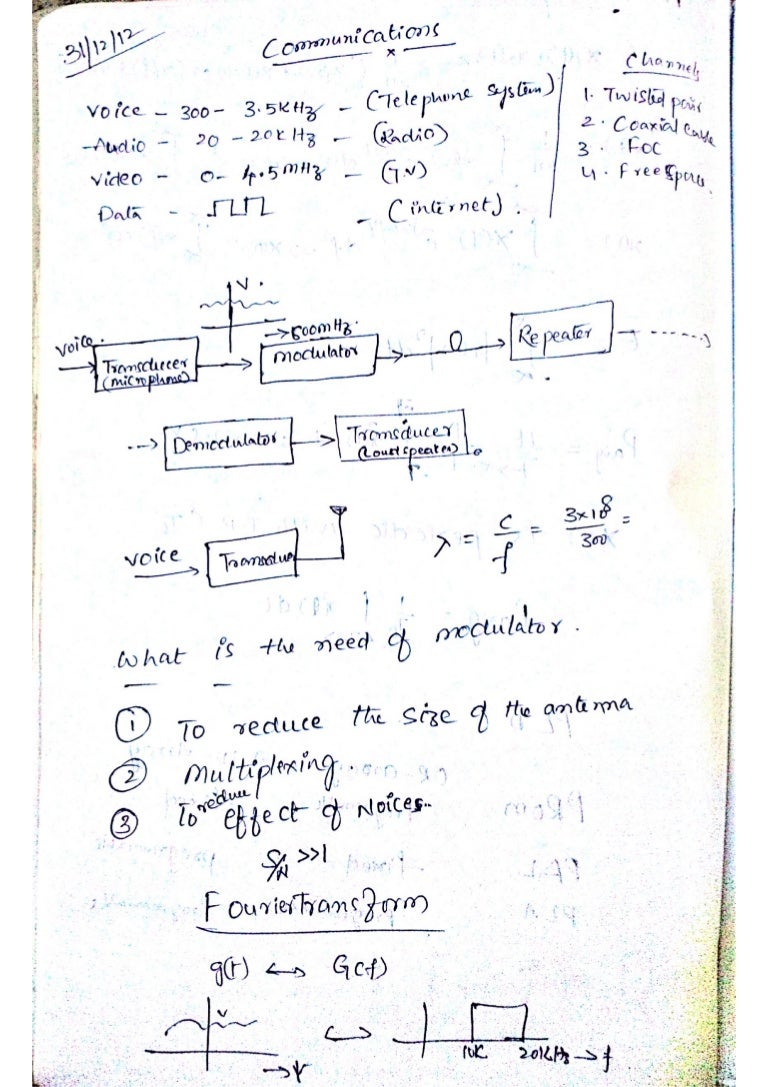 31/12/12
Communications
x
Voice - 300 - 3.5KHz - (Telephone System)
-Audio - 20 - 20KHz - (Radio)
Video - 0- 4.5MHz - (T.V)
Data - - (internet).
Channels
1. Twisted pair
2. Coaxial Cable
3. FOC
4. Free Space.
V.
→600mHz.
voice.
Transducer
(microphone)
modulator
Repeater
Demodulator
Transducer
(Loudspeaker)
voice
λ = c/f = 3×10⁸/300 =
What is the need of modulator.
① To reduce the size of the antenna
② Multiplexing.
③ To reduce effect of Noices..
S/N >>1
Fourier Transform
g(t) ↔ G(f)
V
↔
10K 20KHz → f